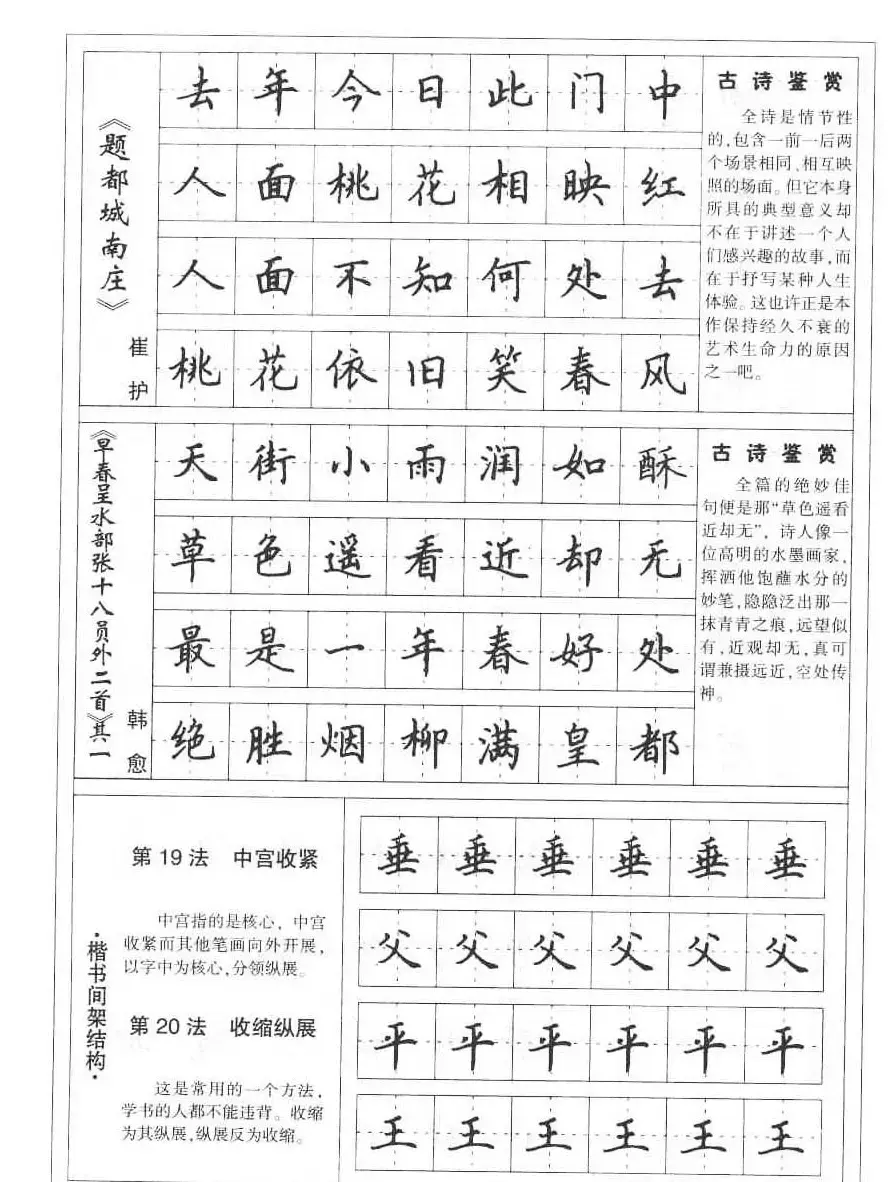 《题都城南庄》
崔护
去年今日此门中
人面桃花相映红
人面不知何处去
桃花依旧笑春风
古诗鉴赏
全诗是情节性
的,包含一前一后两
个场景相同,相互映
照的场面。但它本身
所具的典型意义却
不在于讲述一个人
们感兴趣的故事,而
在于抒写某种人生
体验。这也许正是本
作保持经久不衰的
艺术生命力的原因
之一吧。
《早春呈水部张十八员外二首》其一
韩愈
天街小雨润如酥
草色遥看近却无
最是一年春好处
绝胜烟柳满皇都
古诗鉴赏
全篇的绝妙佳
句便是那“草色遥看
近却无”，诗人像一
位高明的水墨画家,
挥洒他饱蘸水分的
妙笔,隐隐泛出那一
抹青青之痕,远望似
有,近观却无,真可
谓兼摄远近,空处传
神。
·楷书间架结构·
第19法 中宫收紧
中宫指的是核心，中宫
收紧而其他笔画向外开展,
以字中为核心,分领纵展。
第20法 收缩纵展
这是常用的一个方法,
学书的人都不能违背。收缩
为其纵展,纵展反为收缩。
垂垂垂垂垂垂
父父父父父父
平平平平平平
王王王王王王